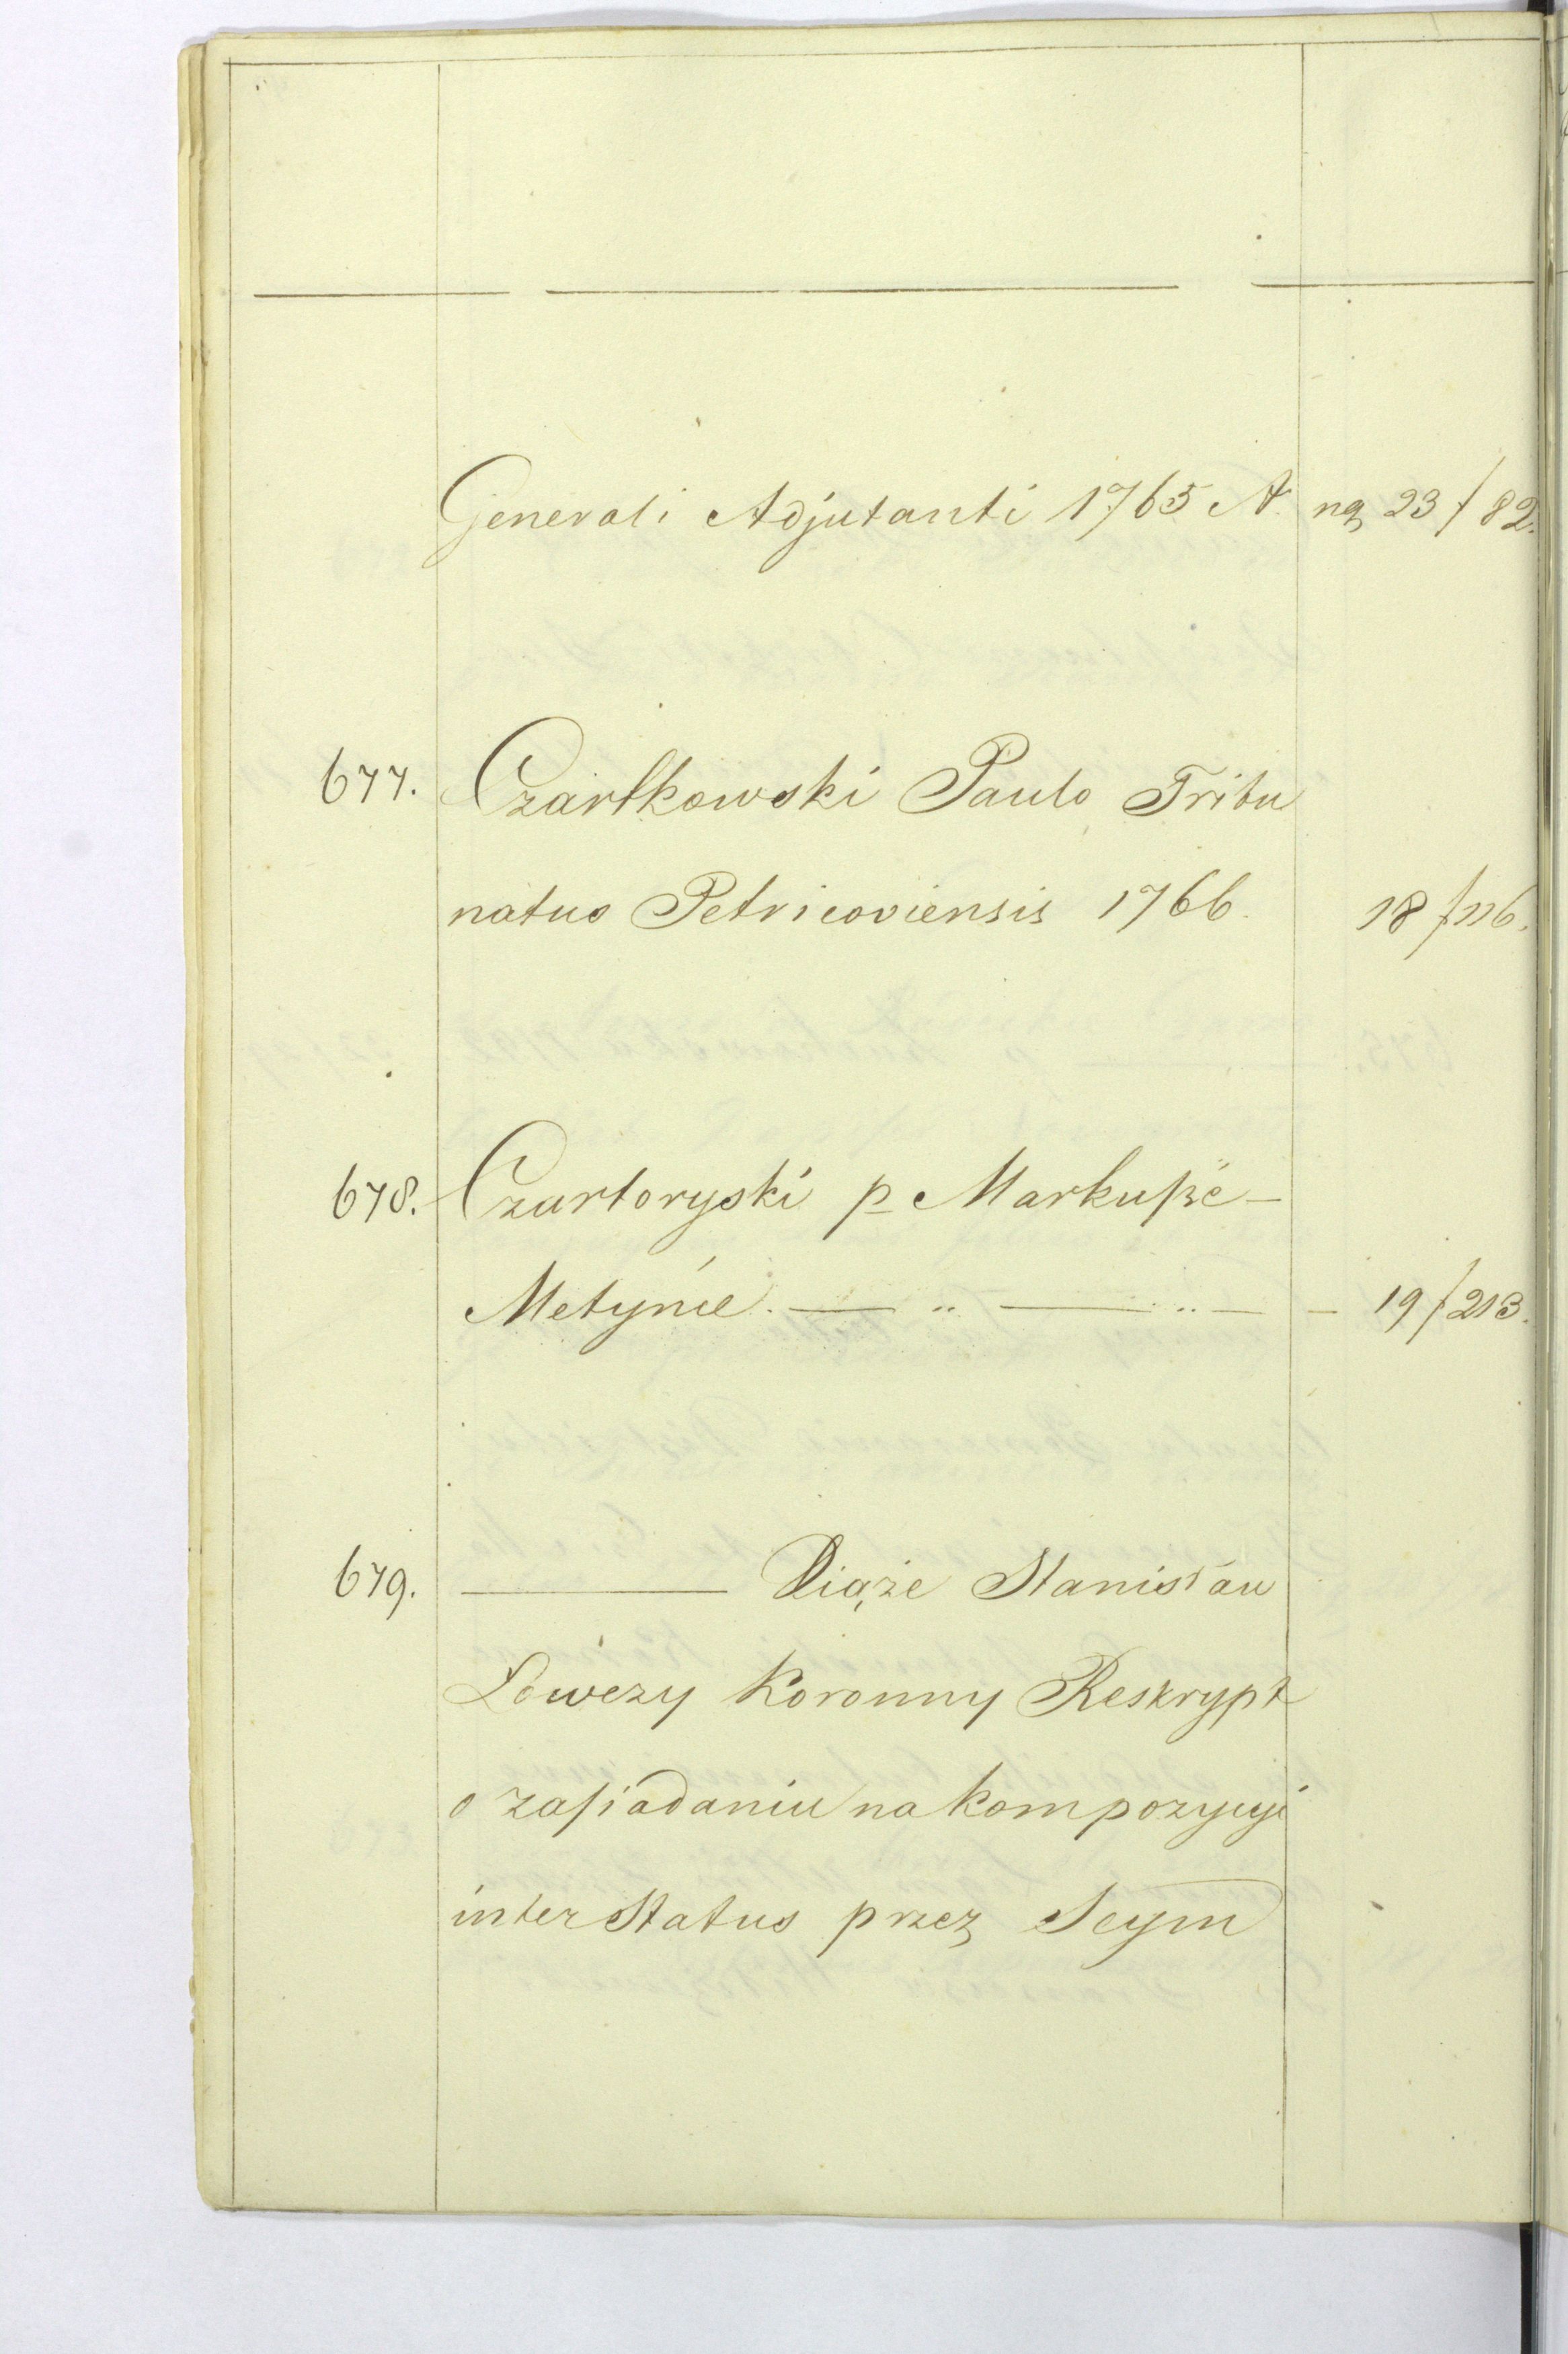 Generali Adjutanti 1765 A. na 23/82.
677. Czartkowski Paulo Tribu
natus Petricoviensis 1766. 18/116.
678. Czartoryski p Markuszé –
Metynie. — „ — „ — – 19/213.
679. ——— Xiąże Stanisław
Łowczy Koronny Reskrypt
o zasiadaniu na kompozycyi
inter Status przez Seym